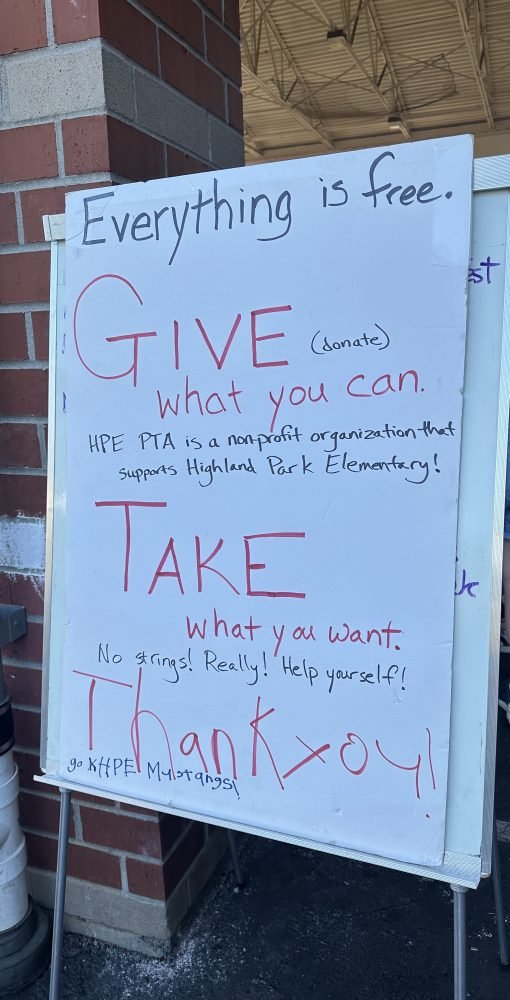 Everything is free.
GIVE (donate)
what you can.
HPE PTA is a non-profit organization that
supports Highland Park Elementary!
TAKE
what you want.
No strings! Really! Help yourself!
Thank you!
go HPE Mustangs!
st